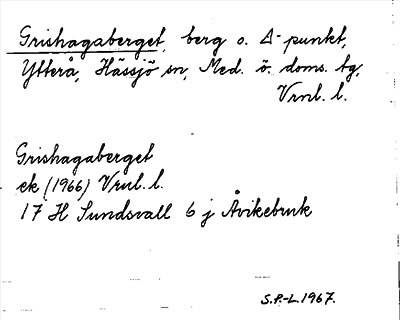 Grishagaberget, berg o. Δ-punkt,
Ytterå, Hässjö sn, Med. ö. doms. tg,
Vrnl. l.
Grishagaberget
ek (1966) Vrnl. l.
17 H Sundsvall 6 j Åvikebruk
S.P.-L. 1967.